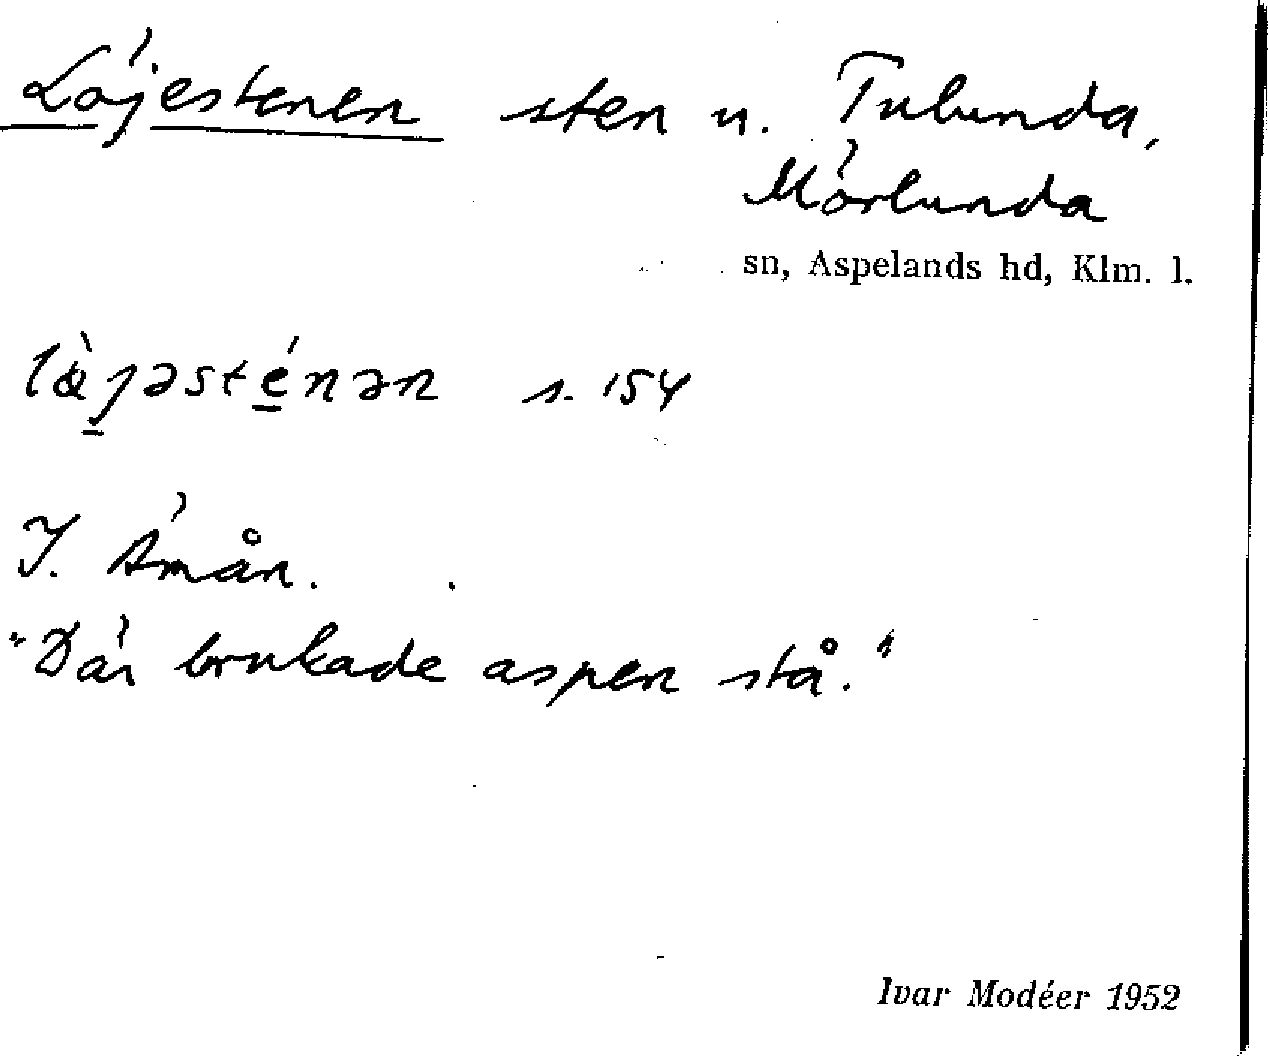 Löjestenen sten u. Tulunda,
Mörlunda
sn, Aspelands hd, Klm. l.
lö̀jəsténən s. 154
I. Ämån.
"Där brukade aspen stå."
Ivar Modéer 1952